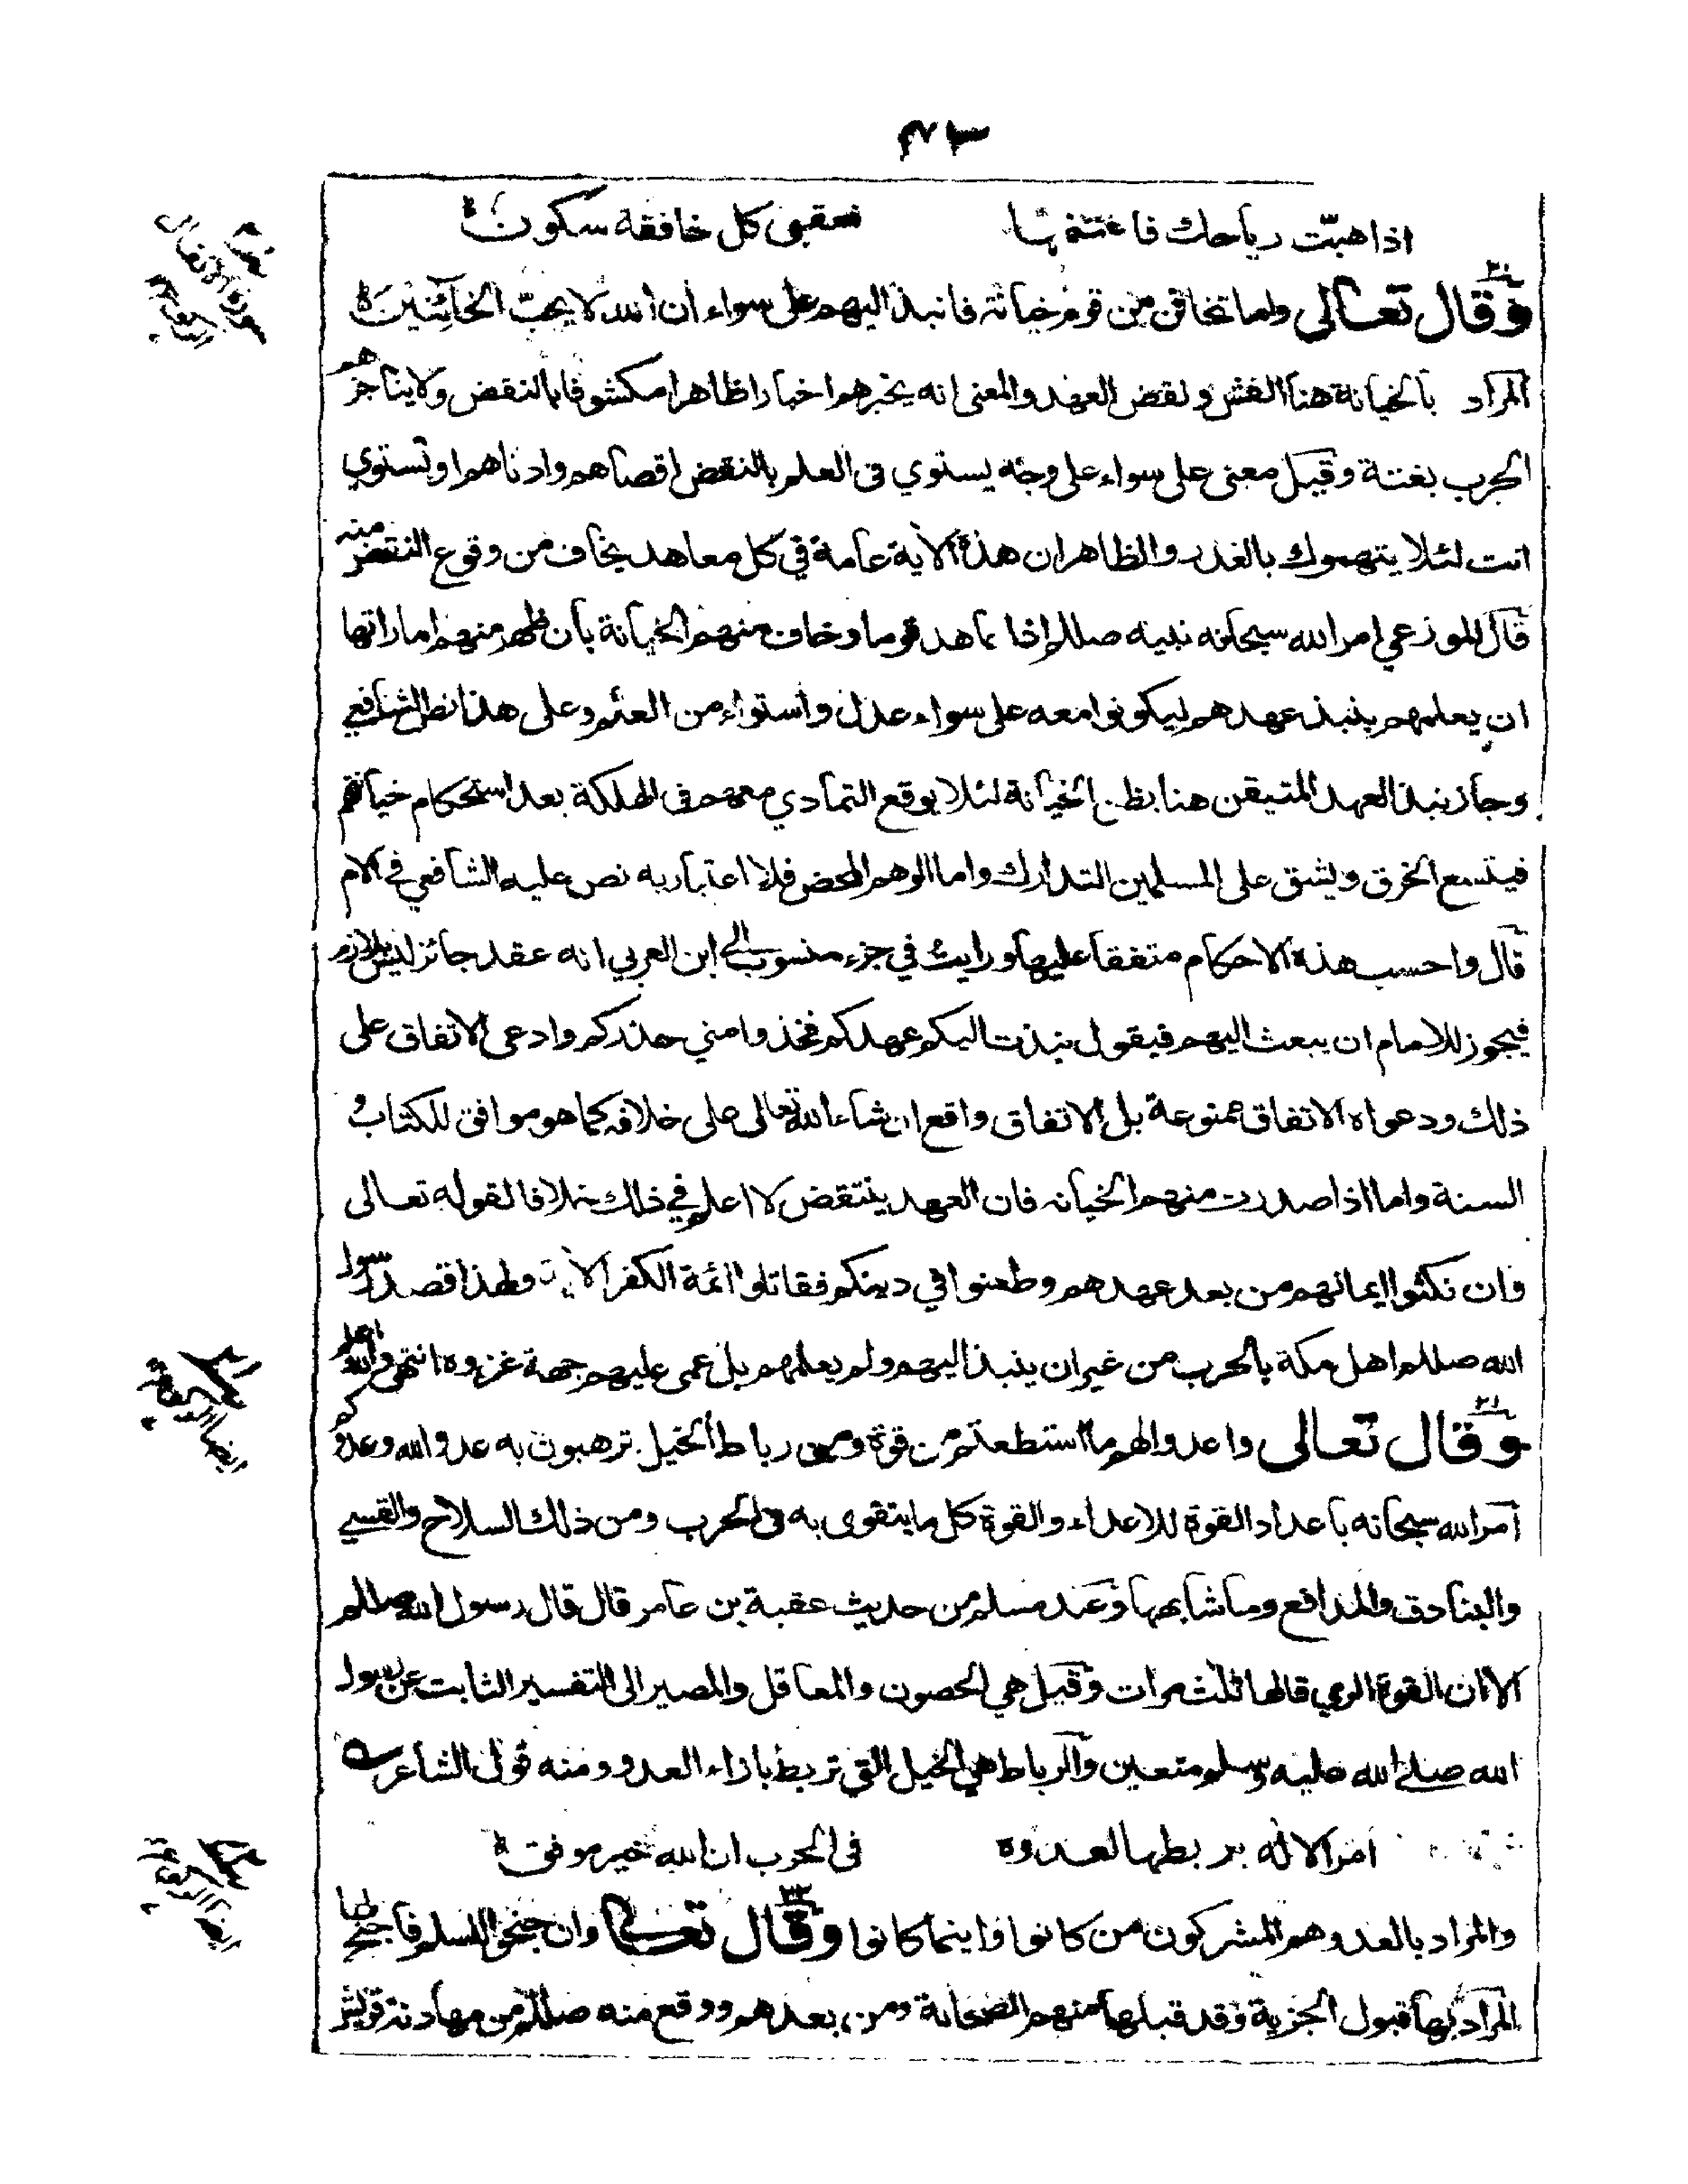 ٤٣
اذا هبّت رياحك فاغتنمها فعقبى كل خافقة سكون
وقال تعالى واما تخافن من قوم خيانة فانبذ اليهم على سواء ان الله لا يحب الخائنين
المراد بالخيانة هنا الغش و نقض العهد والمعنى انه يخبرهم اخبارا ظاهرا مكشوفا بالنقض ولا يناجزهم
الحرب بغتة وقيل معنى على سواء على وجه يستوي فى العلم بالنقض اقصاهم وادناهم او تستوي
انت لئلا يتهموك بالغدر والظاهر ان هذه الاية عامة في كل معاهد يخاف من وقوع النقض منه
قال الموزعي امر الله سبحانه نبيه صللم اذا عاهد قوما وخاف منهم الخيانة بأن ظهر منهم اماراتها
ان يعلمهم بنبذ عهدهم ليكونوا معه على سواء عدل واستواء من العلم وعلى هذا نص الشافعي
وجاز نبذ العهد المتيقن هنا بظن الخيانة لئلا يوقع التمادي معهم فى الهلكة بعد استحكام خيانتهم
فيتسع الخرق ويشق على المسلمين التدارك واما الوهم المحض فلا اعتبار به نص عليه الشافعي في الام
قال واحسب هذه الاحكام متفقا عليها ورايت في جزء منسوب الى ابن العربي انه عقد جائز ليس بلازم
فيجوز للامام ان يبعث اليهم فيقول نبذت اليكم عهدكم فخذوا مني حذركم وادعى الاتفاق على
ذلك ودعواه الاتفاق ممنوعة بل الاتفاق واقع ان شاء الله تعالى على خلافه كما هو موافق للكتاب و
السنة واما اذا صدرت منهم الخيانه فان العهد ينتقض لا اعلم في ذلك خلافا لقوله تعالى
وان نكثوا ايمانهم من بعد عهدهم وطعنوا في دينكم فقاتلوا ائمة الكفر الاية ولهذا قصد رسول
الله صللم اهل مكة بالحرب من غير ان ينبذ اليهم ولم يعلمهم بل عمى عليهم جهة غزوه انتهى والله اعلم
وقال تعالى واعدوا لهم ما استطعتم من قوة ومن رباط الخيل ترهبون به عدو الله وعدوكم
امر الله سبحانه باعداد القوة للاعداء والقوة كل ما يتقوى به فى الحرب ومن ذلك السلاح والقسي
والبنادق والمدافع وما شابهها وعند مسلم من حديث عقبة بن عامر قال قال رسول الله صللم
الا ان القوة الرمي قالها ثلث مرات وقيل هي الحصون والمعاقل والمصير الى التفسير الثابت عن رسول
الله صلى الله عليه وسلم متعين والرباط هي الخيل التي تربط بازاء العدو ومنه قول الشاعر
امر الاله بربطها لعدوه فى الحرب ان الله خير موفق
والمراد بالعدو هم المشركون من كانوا واينما كانوا وقال تعالى وان جنحوا للسلم فاجنح لها
المراد بها قبول الجزية وقد قبلها منهم الصحابة ومن بعدهم ووقع منه صللم من مهادنة قريش